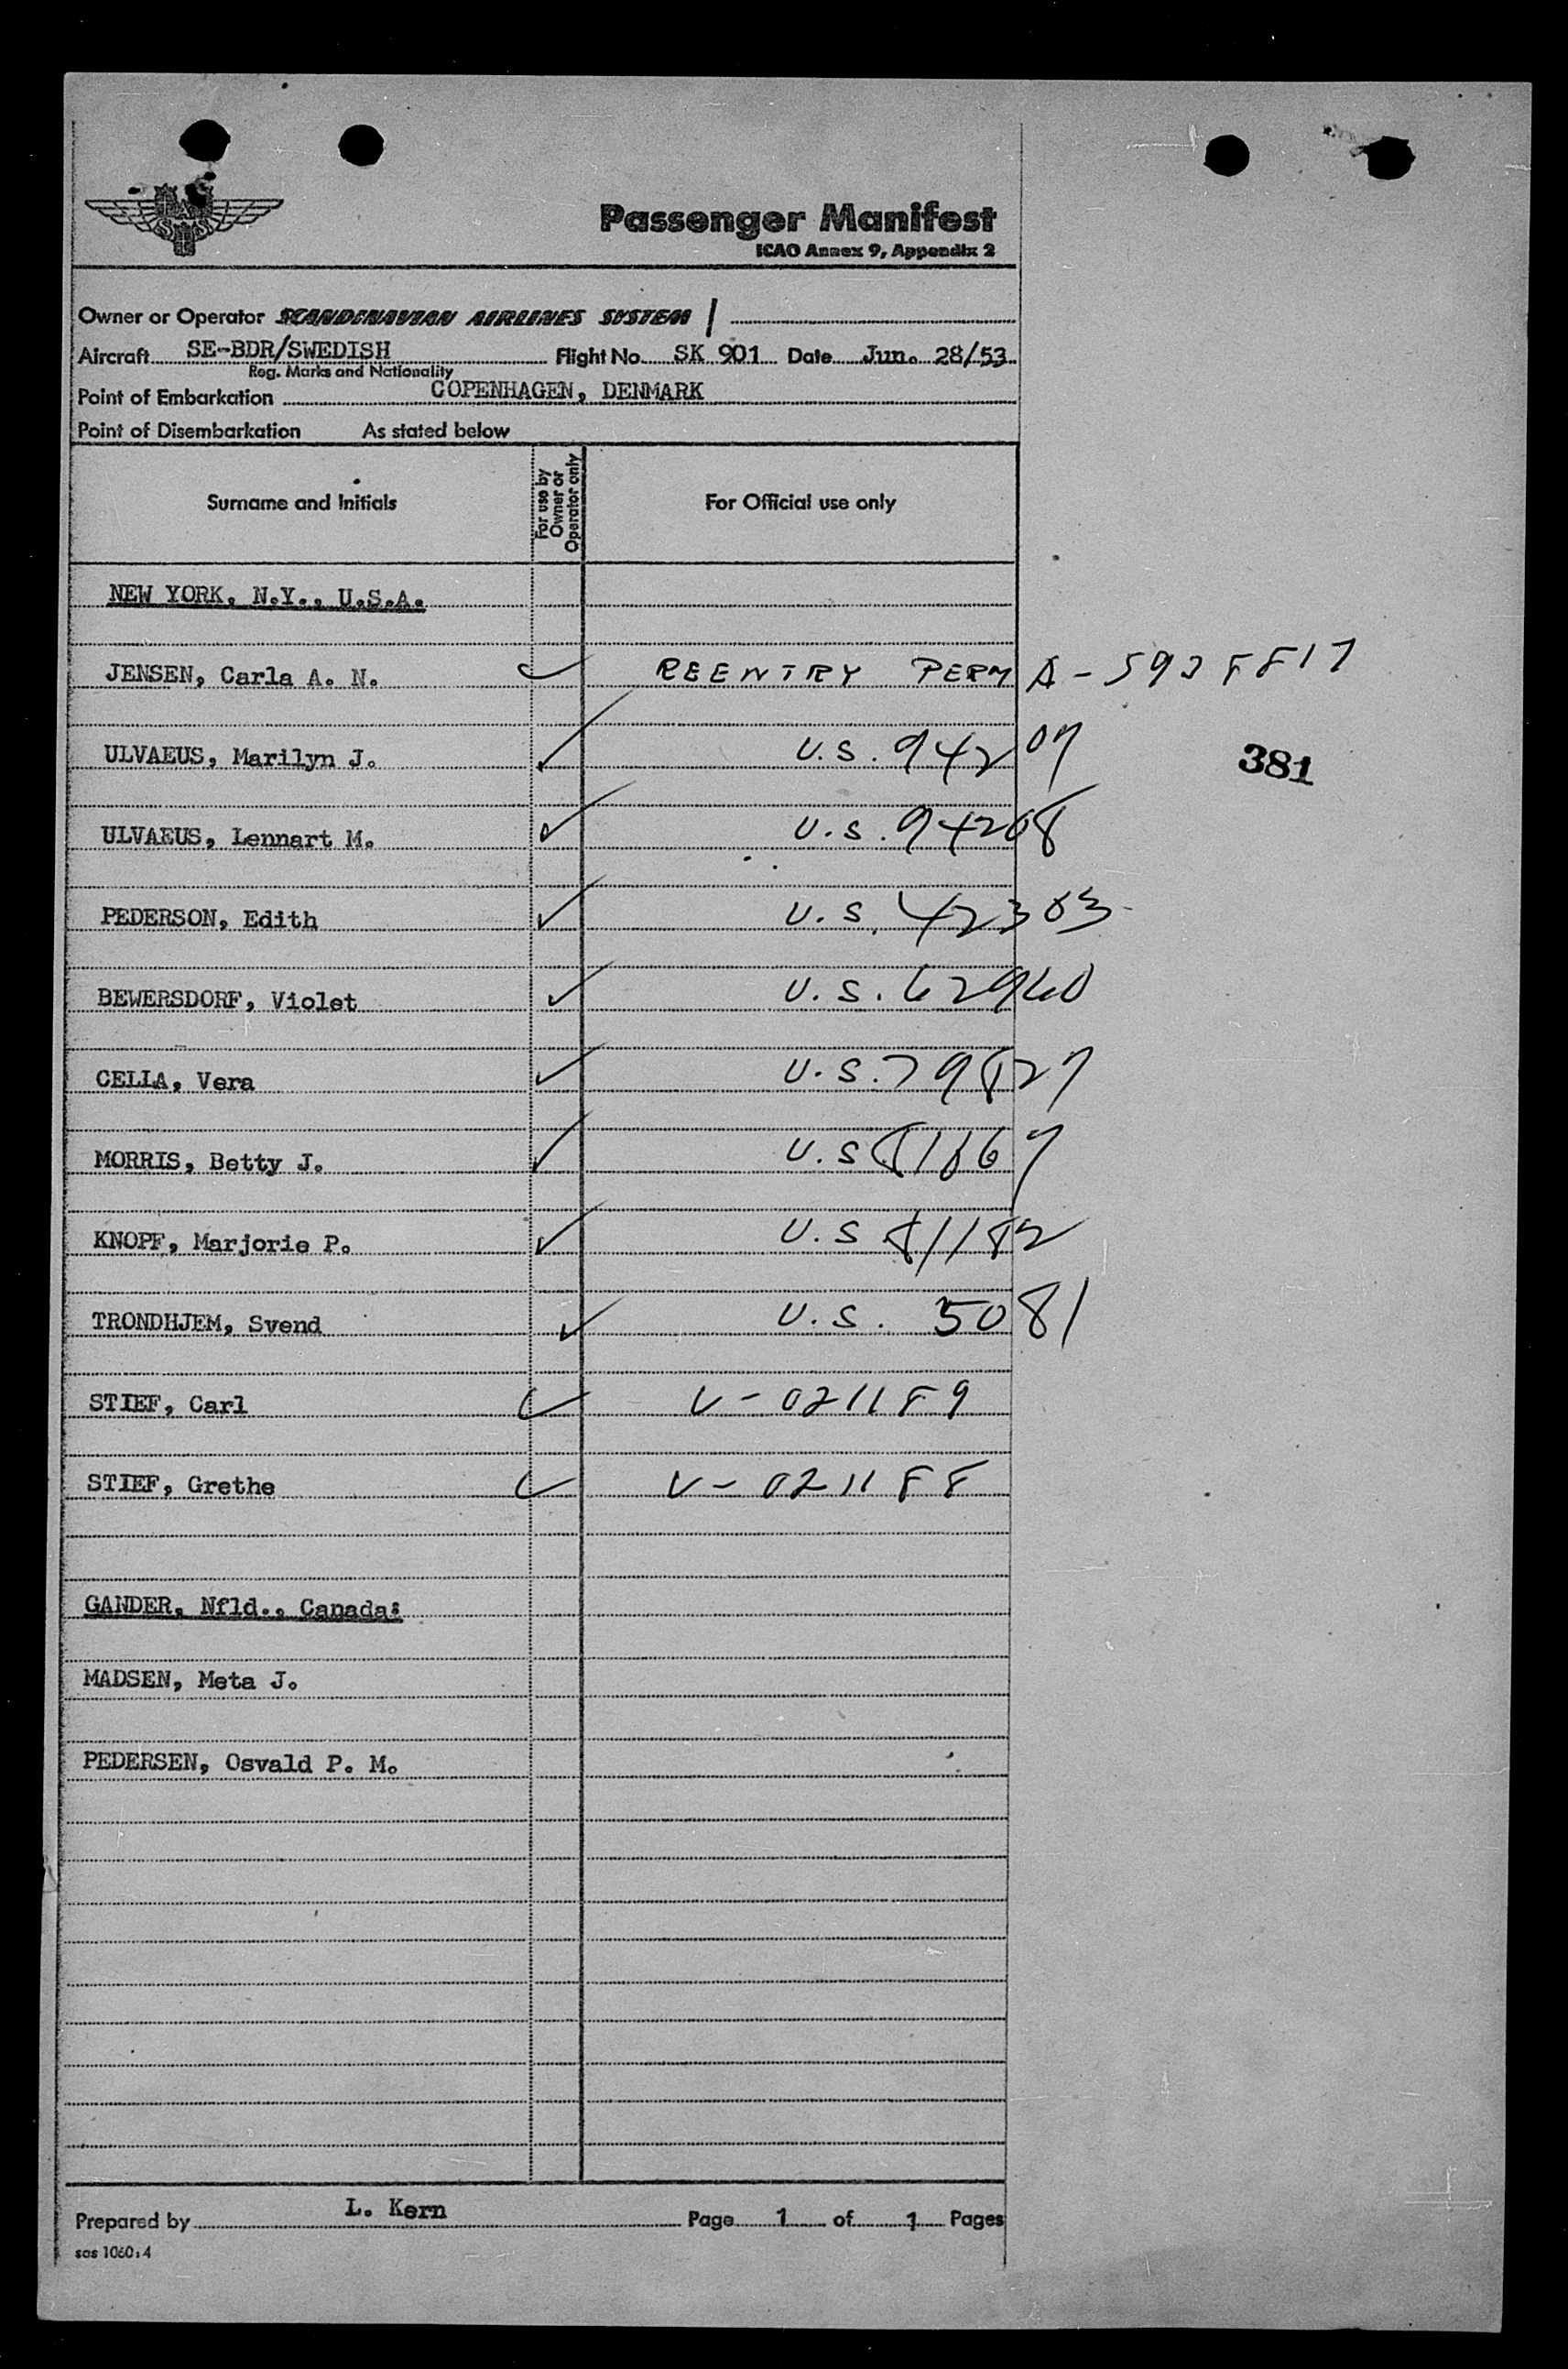 Passenger Manifest
ICAO Annex 9, Appendix 2
Owner or Operator SCANDINAVIAN AIRLINES SYSTEM
Aircraft SE-BDR/SWEDISH Flight No. SK 901 Date Jun. 28/53
Reg. Marks and Nationality
Point of Embarkation COPENHAGEN, DENMARK
Point of Disembarkation As stated below
Surname and Initials For use by Owner or Operator only For Official use only
NEW YORK, N.Y., U.S.A.
JENSEN, Carla A. N. REENTRY PERM A-
ULVAEUS, Marilyn J. U.S. 94207
381
ULVAEUS, Lennart M. U.S. 94208
PEDERSON, Edith U.S. 42303
BEWERSDORF, Violet U.S. 62960
CELLA, Vera U.S. 79827
MORRIS, Betty J. U.S
KNOPF, Marjorie P. U.S 81182
TRONDHJEM, Svend U.S. 5081
STIEF, Carl V-021189
STIEF, Grethe V-021188
GANDER, Nfld., Canada:
MADSEN, Meta J.
PEDERSEN, Osvald P. M.
Prepared by L. Kern Page 1 of 1 Pages
sas 1060:4